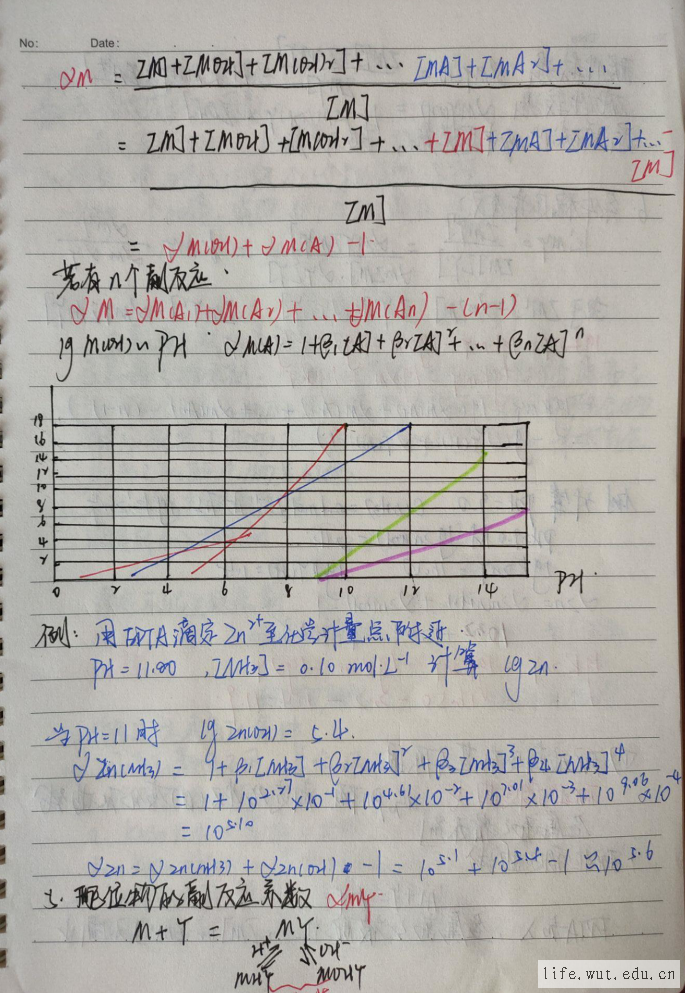 No:      Date:
αM = [M]+[MOH]+[M(OH)2]+… [MA]+[MA2]+… / [M]
= [M]+[MOH]+[M(OH)2]+…+[M]+[MA]+[MA2]+…-[M] / [M]
= αM(OH)+αM(A)-1
若有n个副反应.
αM=αM(A1)+αM(A2)+…+αM(An)-(n-1)
lg M(OH)~PH αM(A)=1+β1[A]+β2[A]²+…+βn[A]ⁿ
18
16
14
12
10
8
6
4
2
0 2 4 6 8 10 12 14 PH.
例: 用EDTA滴定Zn²⁺至化学计量点附近.
PH=11.00 , [NH3]=0.10 mol·L⁻¹ 计算 lg Zn.
当PH=11时 lg Zn(OH)=5.4.
αZn(NH3)=1+β1[NH3]+β2[NH3]²+β3[NH3]³+β4[NH3]⁴
=1+10^2.27×10⁻¹+10^4.61×10⁻²+10^7.01×10⁻³+10^9.06×10⁻⁴
=10^5.10
αZn=αZn(NH3)+αZn(OH)-1=10^5.1+10^5.4-1≈10^5.6
3. 配位物的副反应系数 αMY.
M+Y = MY
H⁺ OH⁻
MHY MOHY
life.wut.edu.cn